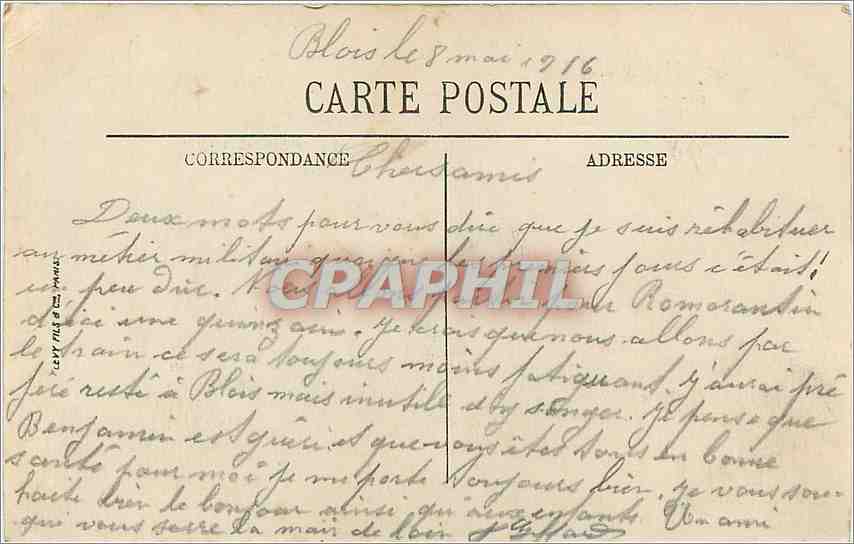 Blois le 8 mai 1916
CARTE POSTALE
CORRESPONDANCE
ADRESSE
Chers amis
Deux mots pour vous dire que je suis réhabituer
au métier militaire les premiers jours c'était
un peu dur. Nous pour Romorantin
d'ici une quinzaine. Je crois que nous allons par
le train ce sera toujours moins fatiguant. J'aurai pré
feré resté à Blois mais inutile d'y songer. Je pense que
Benjamin est guéri et que vous êtes tous en bonne
santé pour moi je me porte toujours bien. Je vous sou-
haite bien le bonjour ainsi qu'aux enfants Un ami
qui vous serre la main de loin
LEVY FILS & Cie, PARIS
CPAPHIL